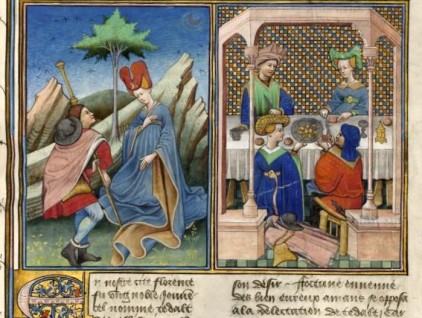 En nostre cite florence
fu ung noble jouve
cel nomme tedalt
son desir . fortune ennemie
des bien eureux amans se opposa
a la delectation de tedalt / Car